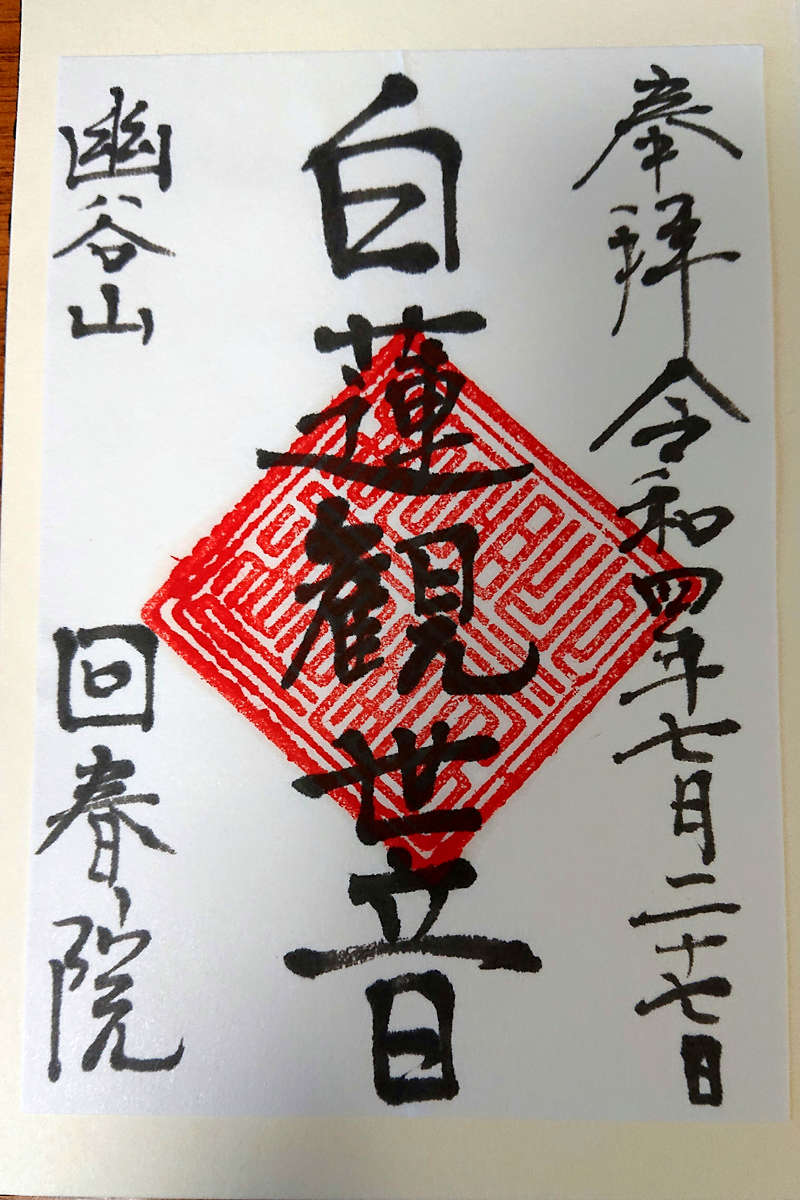 奉拝 令和四年七月二十七日
白蓮観世音
幽谷山 回春院